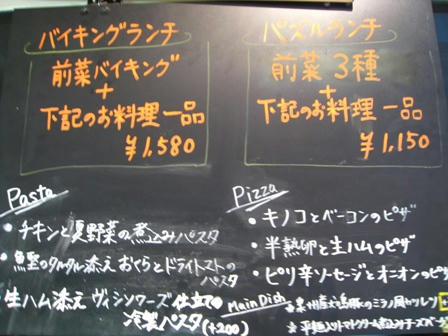 バイキングランチ
前菜バイキング
+
下記のお料理一品
¥1,580
パズルランチ
前菜3種
+
下記のお料理一品
¥1,150
Pasta
・チキンと夏野菜の煮込みパスタ
・魚貝のタルタル添え おくらとドライトマトの
パスタ
・生ハム添え ヴィシソワーズ仕立ての
冷製パスタ(+200)
Pizza
・キノコとベーコンのピザ
・半熟卵と生ハムのピザ
・ピリ辛ソーセージとオニオンのピザ
Main Dish
ミラノ風カツレツ